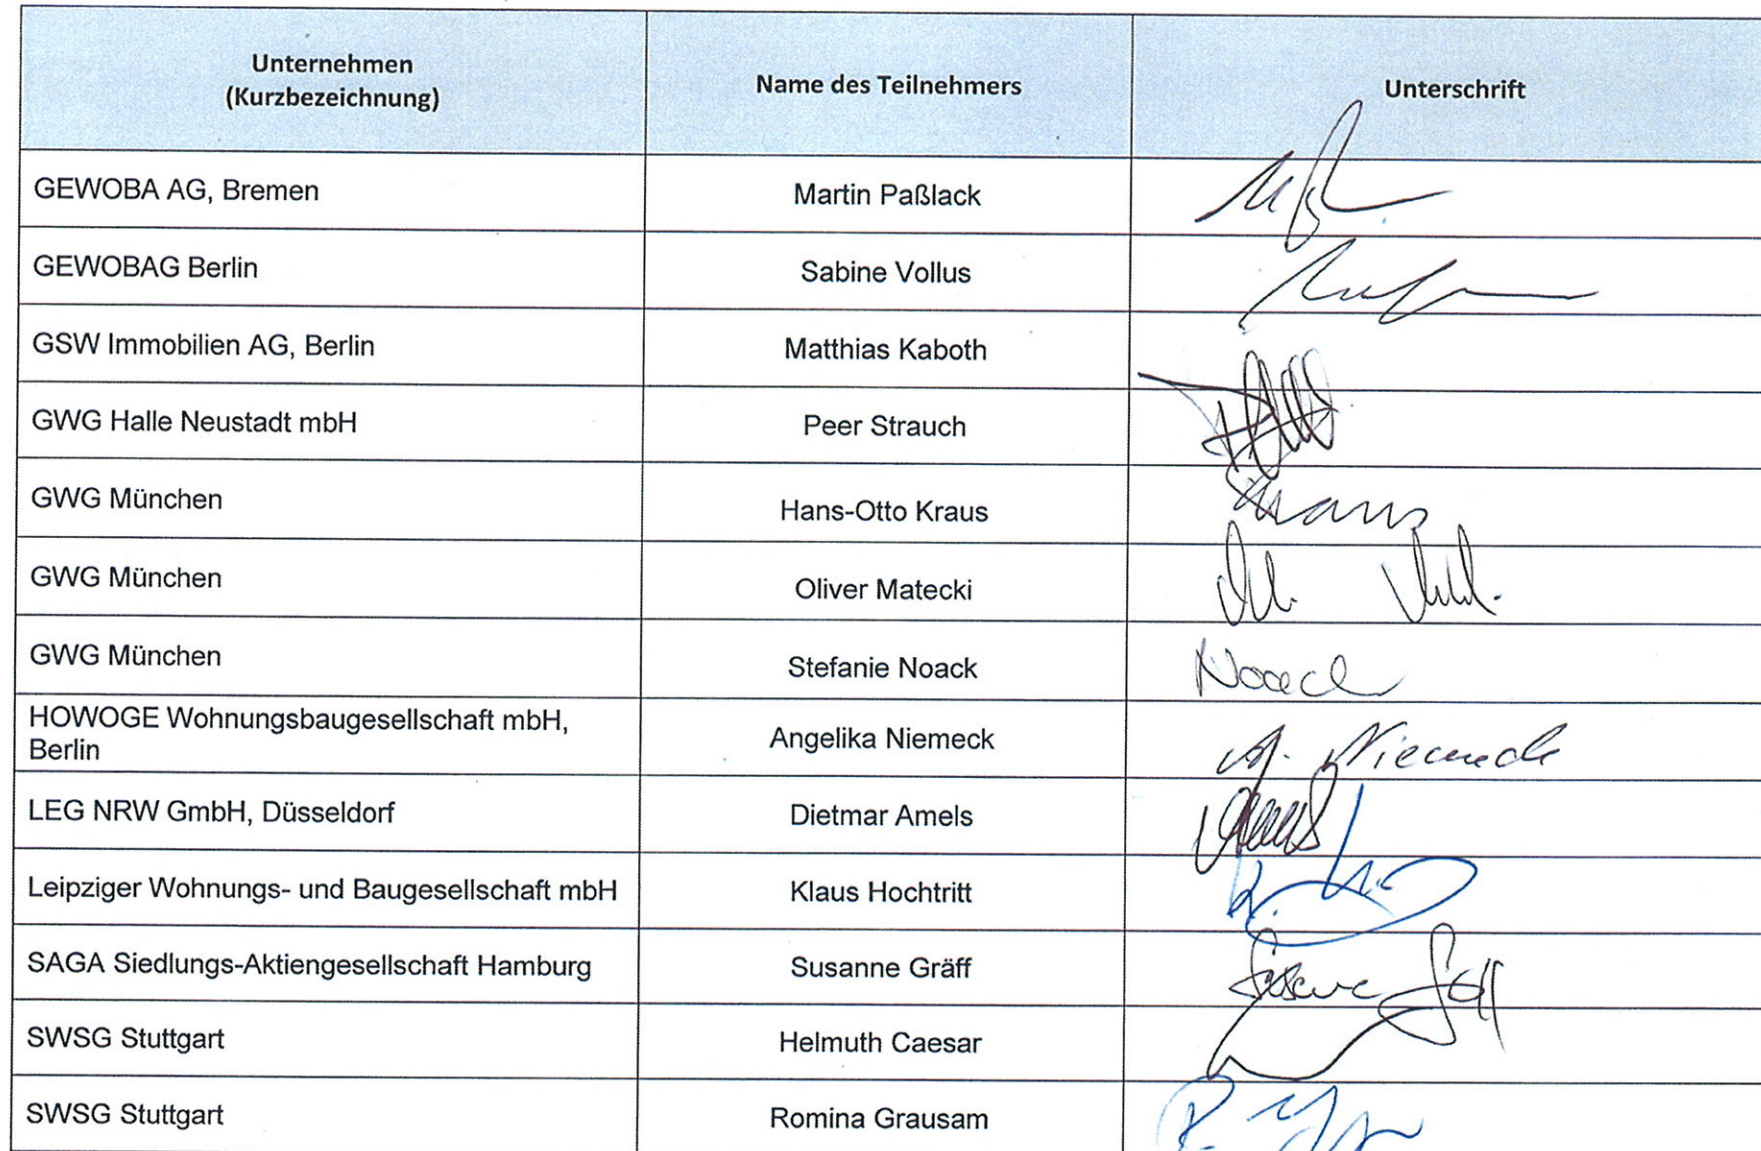 Unternehmen
(Kurzbezeichnung)
Name des Teilnehmers
Unterschrift
GEWOBA AG, Bremen
Martin Paßlack
GEWOBAG Berlin
Sabine Vollus
GSW Immobilien AG, Berlin
Matthias Kaboth
GWG Halle Neustadt mbH
Peer Strauch
GWG München
Hans-Otto Kraus
Kraus
GWG München
Oliver Matecki
GWG München
Stefanie Noack
Noack
HOWOGE Wohnungsbaugesellschaft mbH,
Berlin
Angelika Niemeck
A. Niemeck
LEG NRW GmbH, Düsseldorf
Dietmar Amels
Amels
Leipziger Wohnungs- und Baugesellschaft mbH
Klaus Hochtritt
SAGA Siedlungs-Aktiengesellschaft Hamburg
Susanne Gräff
SWSG Stuttgart
Helmuth Caesar
SWSG Stuttgart
Romina Grausam